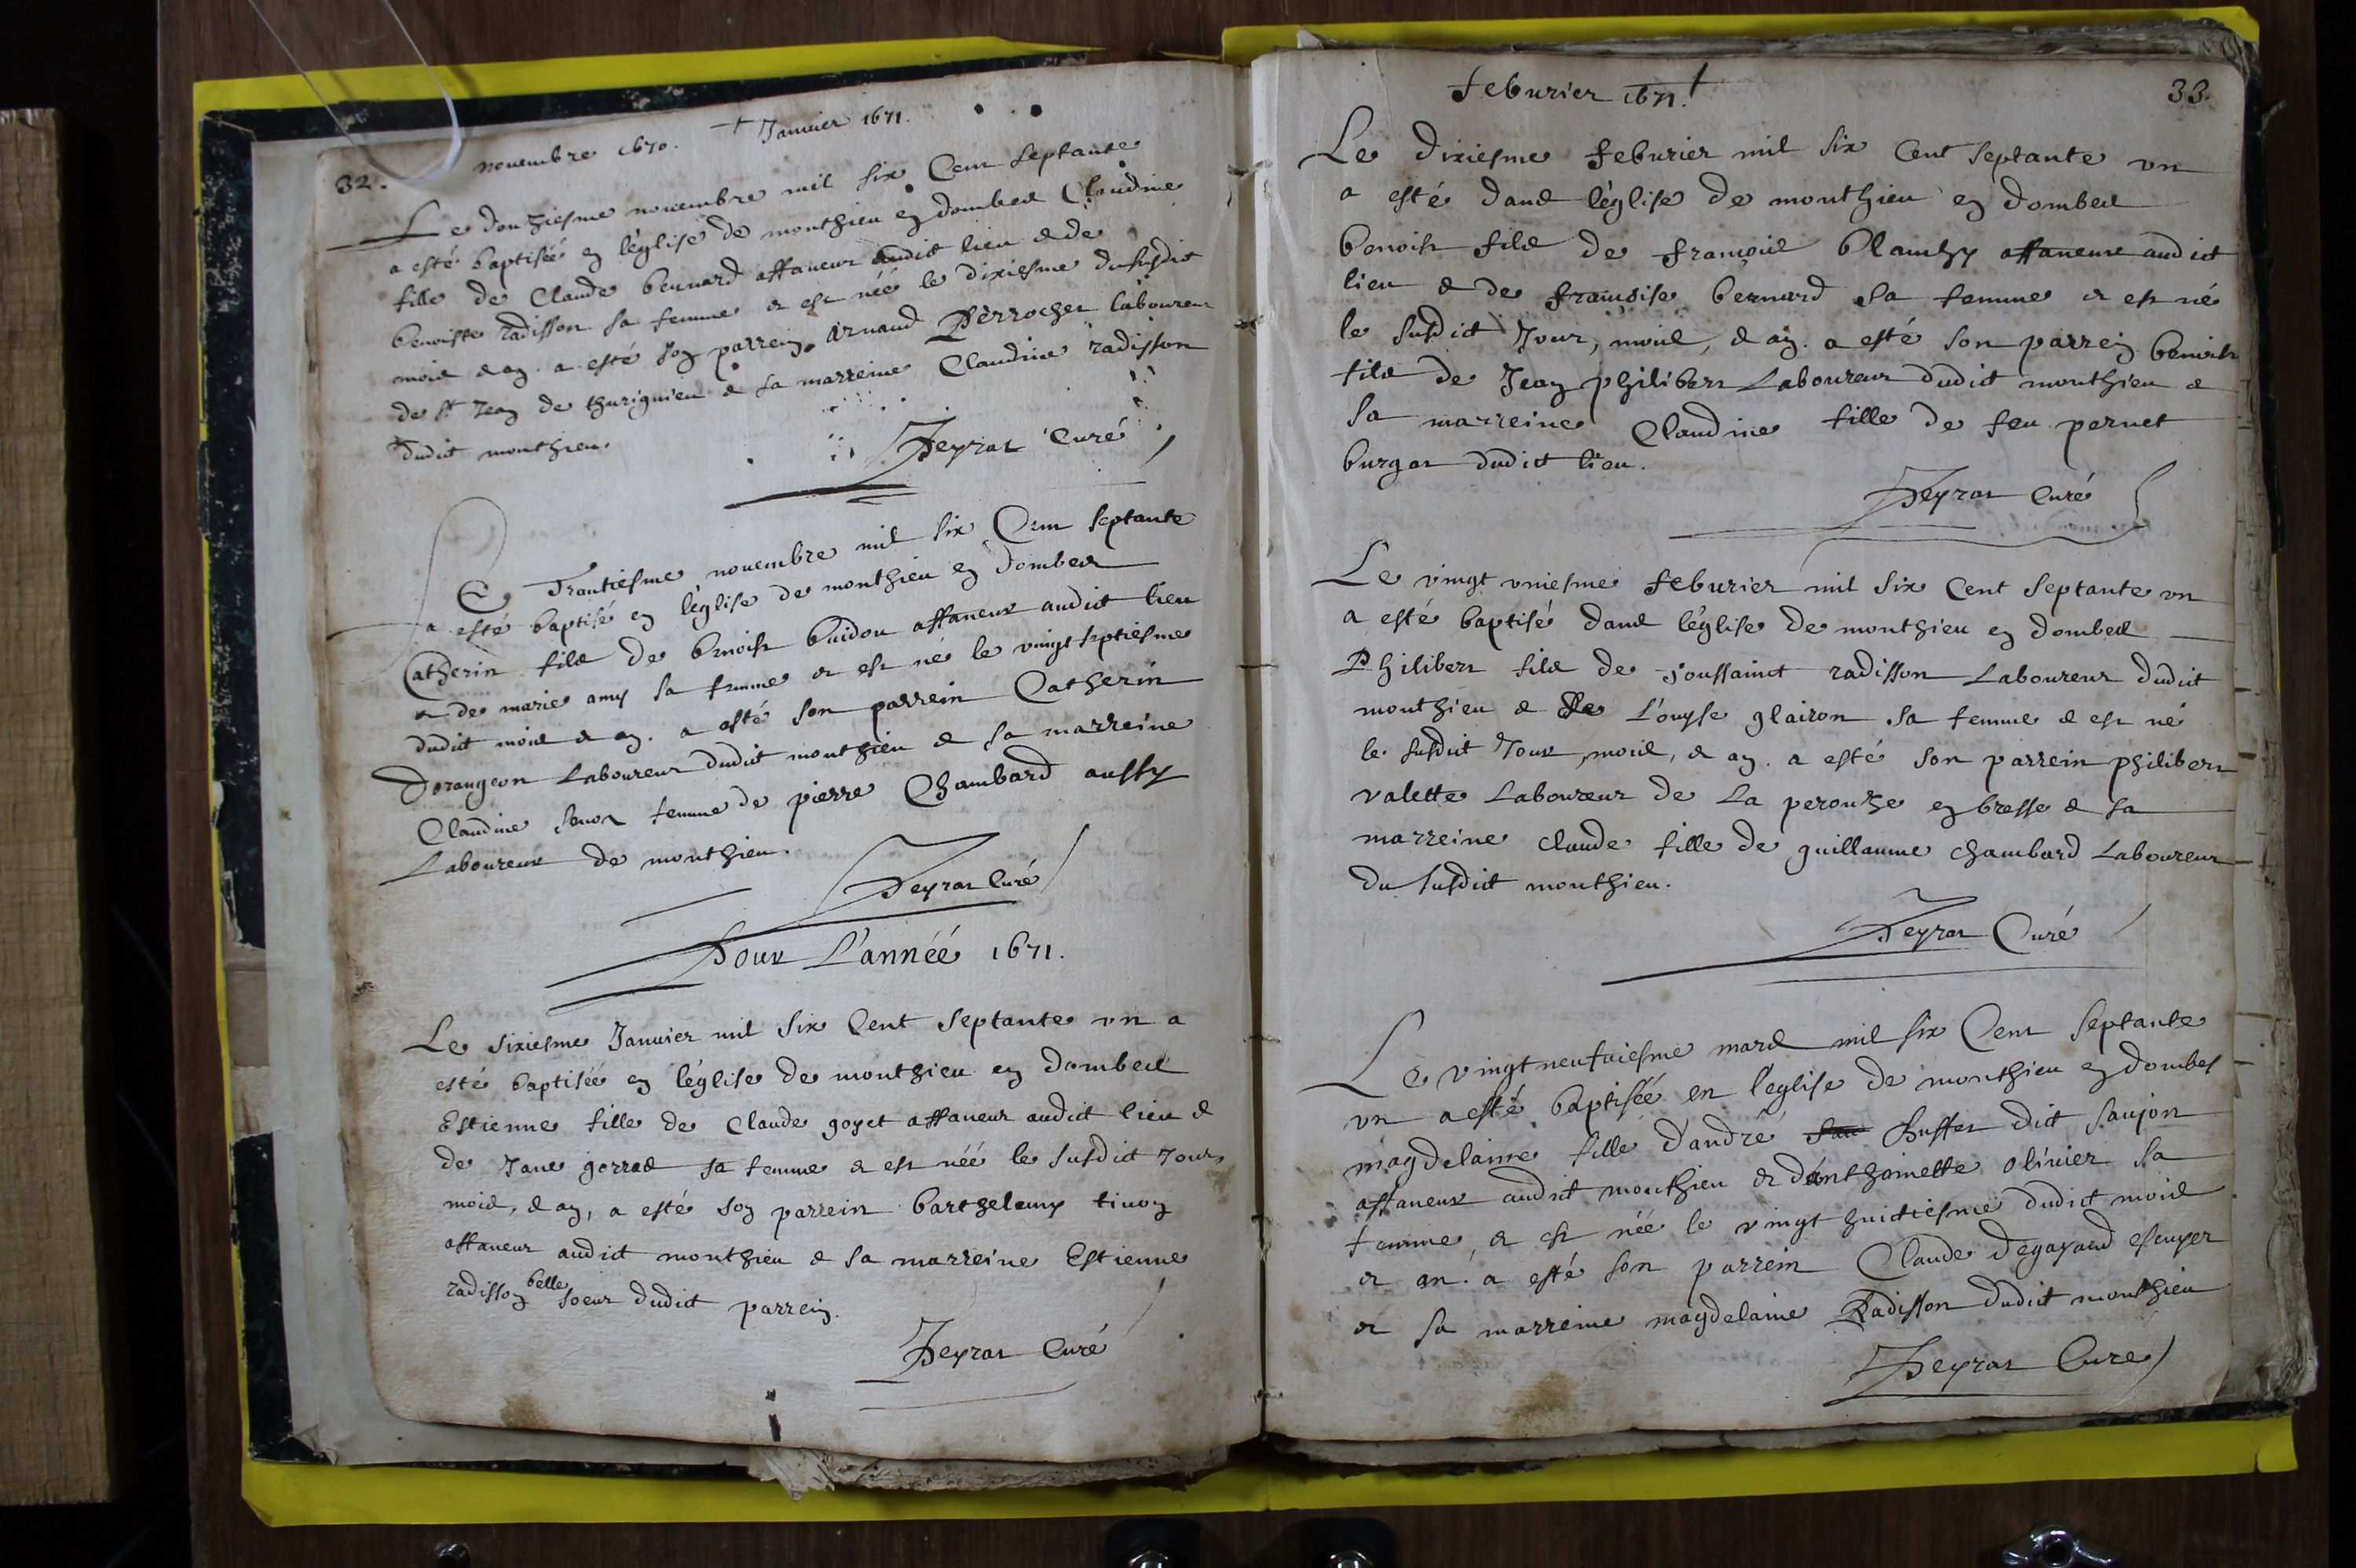 32. nouembre 1670. + Januier 1671.
Le douziesme nouembre mil six Cent septante
a esté baptiséé en l'église de monthieu en dombes Claudine
fille de Claude bernard affaneur audit lieu & de
benoiste radisson sa femme & est néé le dixiesme dususdit
mois & an. a esté son parrein Arnaud Perrochet laboureur
de St Jean de thurignieu & sa marreine Claudine radisson
dudit monthieu.
Peyrat Curé
Le Trantiesme nouembre mil six Cent septante
a esté baptisé en l'église de monthieu en dombes
Catherin fils de benoist buidon affaneur audict lieu
& de marie amy sa femme & est né le vingt septiesme
dudict mois & an. a esté son parrein Catherin
dorangeon Laboureur dudict monthieu & sa marreine
Claudine femme de pierre Chambard aussy
Laboureur de monthieu.
Peyrat Curé
Pour L'annéé 1671.
Le sixiesme Januier mil six Cent septante vn a
esté baptiséé en l'église de monthieu en dombes
Estienne fille de Claude goyet affaneur audict lieu &
de Jane gorras sa femme & est néé le susdict Jour,
mois, & an, a esté son parrein barthelemy tiuon
affaneur audict monthieu & sa marreine Estienne
radisson belle soeur dudict parrein.
Peyrat Curé
feburier 1671. +
33.
Le dixiesme feburier mil six Cent septante vn
a esté dans l'église de monthieu en dombes
benoist fils de françois blanchy affaneur audict
lieu & de françoise bernard sa femme & est né
le susdict Jour, mois, & an. a esté son parrein benoist
fils de Jean philibert Laboureur dudict monthieu &
sa marreine Claudine fille de feu pernet
burgat dudict lieu.
Peyrat Curé
Le vingt vniesme feburier mil six Cent septante vn
a esté baptisé dans l'église de monthieu en dombes
Philibert fils de Toussainct radisson Laboureur dudict
monthieu & de L'ouyse glairon sa femme & est né
le susdict Jour, mois, & an. a esté son parrein philibert
valette Laboureur de La perouze en bresse & sa
marreine claude fille de guillaume chambard Laboureur
du susdict monthieu.
Peyrat Curé
Le vingt neufuiesme mars mil six Cent septante
vn a esté baptiséé en l'eglise de monthieu en dombes
magdelaine fille d'andré buffet dict saujon
affaneur audict monthieu & d'anthoinette oliuier sa
femme, & est néé le vingt huictiesme dudict mois
& an. a esté son parrein Claude degayand escuyer
& sa marreine magdelaine Radisson dudict monthieu
Peyrat Cure